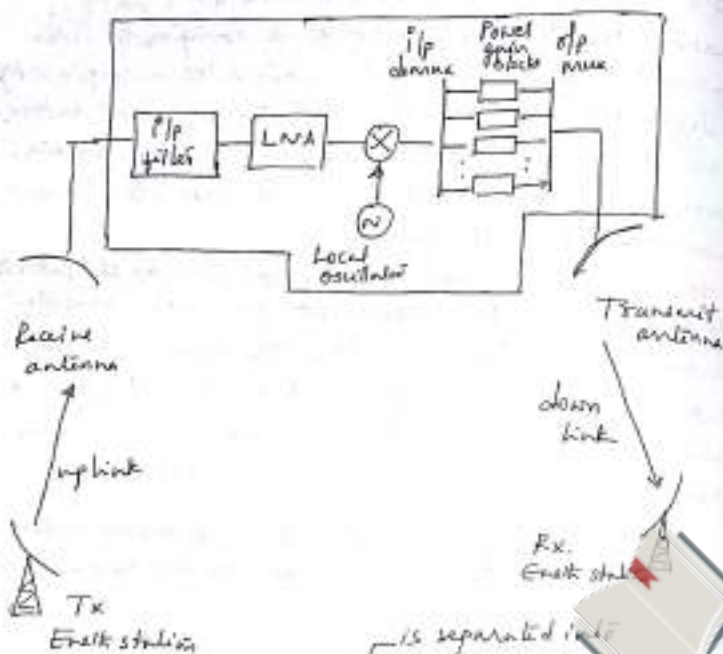 i/p demux
Power gain blocks
o/p mux
i/p filter
LNA
Local oscillator
Receive antenna
Transmit antenna
uplink
down link
Tx
Earth station
Rx.
Earth
is separated into